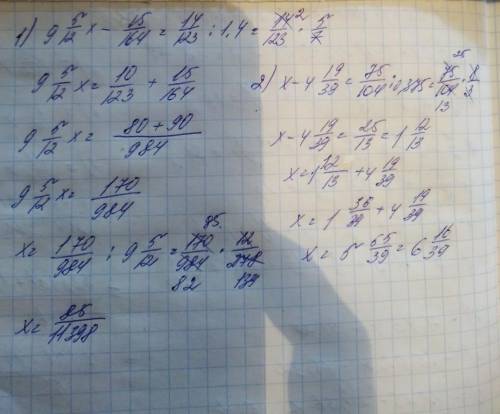 1) 9 5/12 x - 15/164 = 14/123 : 1,4 = 14²/123 · 5/7
9 5/12 x = 10/123 + 15/164
9 5/12 x = (80 + 90)/984
9 5/12 x = 170/984
x = 170/984 : 9 5/12 = 170/984 · 12/278
85.
82 139
x = 85/11398
2) x - 4 19/39 = 75/104 : 0,375 = 75/104 · 8/3
25
13
x - 4 19/39 = 25/13 = 1 12/13
x = 1 12/13 + 4 19/39
x = 1 36/39 + 4 19/39
x = 5 55/39 = 6 16/39